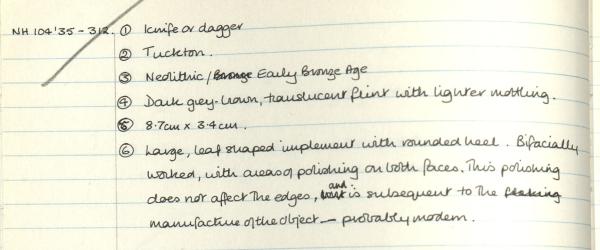 NH 104'35-312. ① Knife or dagger
② Tuckton.
③ Neolithic / Bronze Early Bronze Age
④ Dark grey-brown, translucent flint with lighter mottling.
⑤ 8.7cm x 3.4cm.
⑥ Large, leaf shaped implement with rounded heel. Bifacially
worked, with areas of polishing on both faces. This polishing
does not affect the edges, and is subsequent to the flaking
manufacture of the object – probably modern.